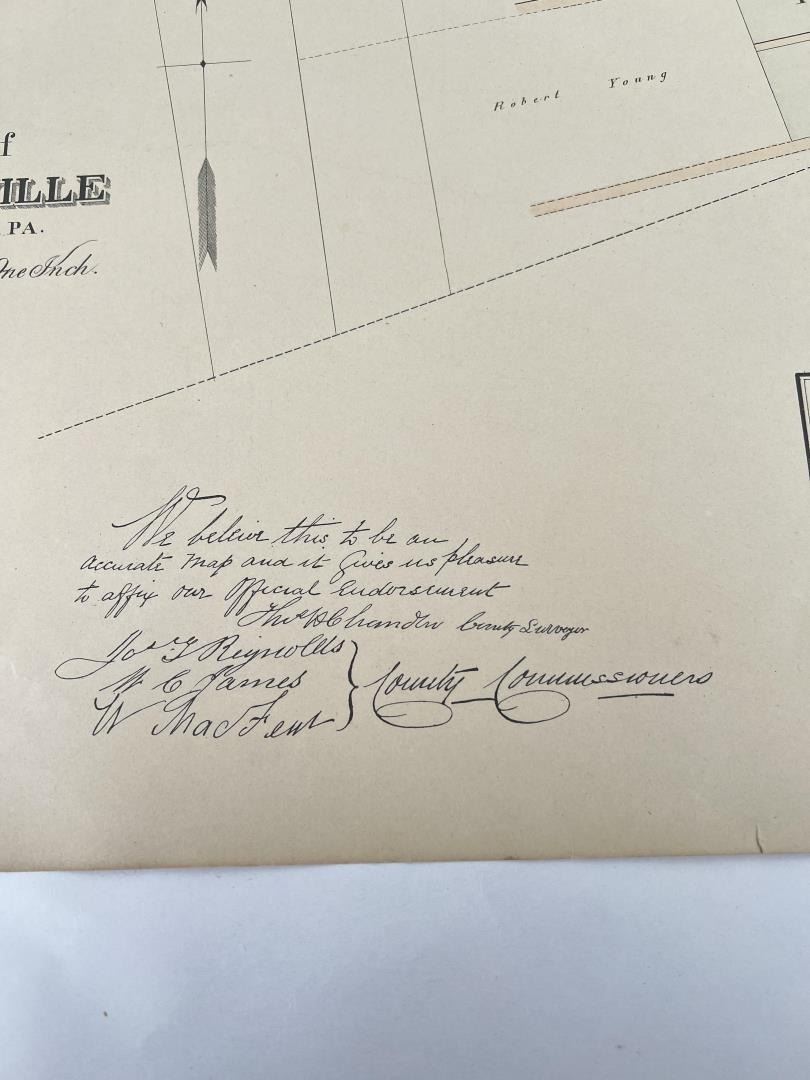 Robert Young
f
ILLE
PA.
One Inch.
We beleive this to be an
accurate map and it Gives us pleasure
to affix our Official Endorsement
Thos H Chandler County Surveyor
Reynolds
W C James
W
County Commissioners